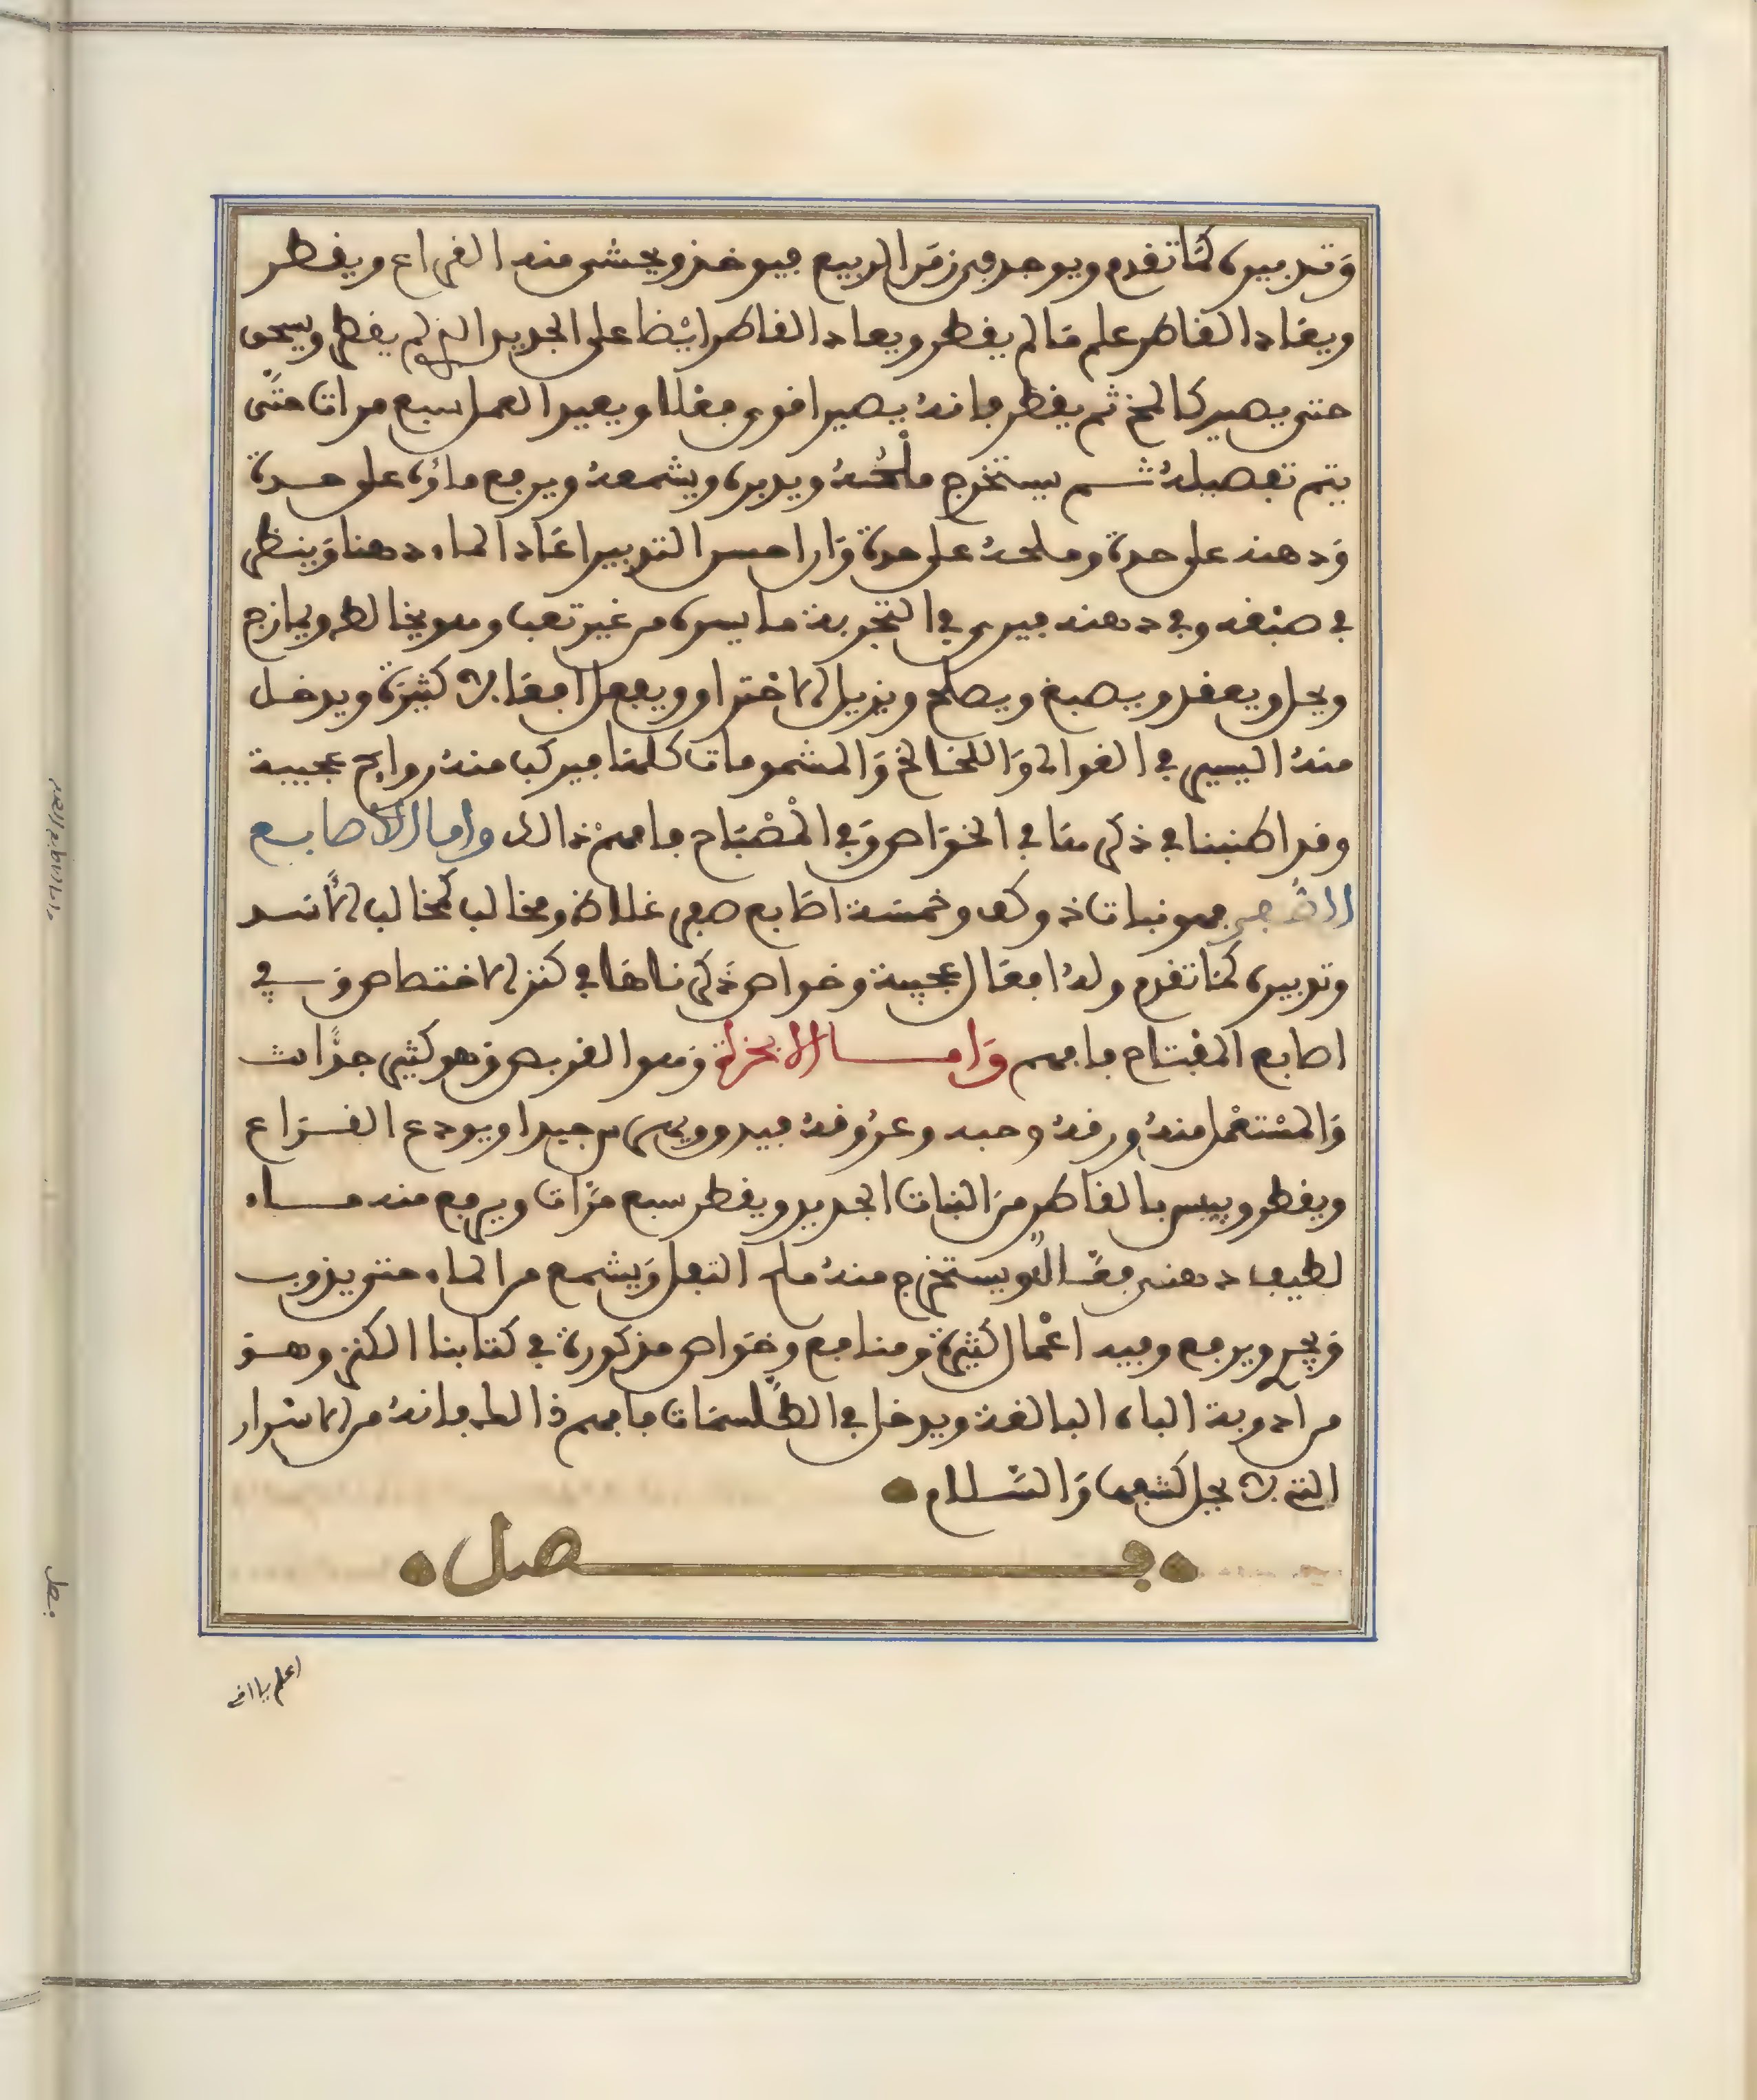 وَتدبيره كمَا تقدم ويوجد في زمَن الربيع فيوخذ ويحشى منه القراع ويقطر
ويعَاد القاطر على مَا لم يقطر ويعاد القاطر ايْضا على الجديد الذي لم يقطر ويسحق
حتى يصير كالمخ ثم يقطر فانهُ يصير اقوى فعلا ويعيد العمل سبع مرات حتَّى
يتم تفصيلهُ ثم يستخرج ملْحُهُ ويدبره ويشمعهُ ويرفع ماؤه على حدة
وَدهنه على حدة وملحهُ على حدة وَان احسن التدبير اعَاد الماء دهنا وَينظر
في صبْغه وفي دهنه فيرى في التجربة ما يسره من غير تعب وهو يخالط ويمازج
ويحل ويعقد ويصبغ ويصلح ويزيل الاحتراق ويفعل افعَالا كثيرَة ويدخل
منهُ اليسير في الغوالي وَاللخالخ وَالمشمومات كلهَا فيركب منهُ روايح عجيبة
وقد اطنبنا في ذكرهَا في الخوَاص وَفي المصْبَاح فافهمْ ذالك واما الاصابع
الصفر فهو نبات ذو كف وخمسَة اصَابع صفر غلاظ ومخالب كمخالب الأسَد
وتدبيره كمَا تقدم ولهُ افعَال عجيبة وخواص ذَكرناهَا في كنز الاختصاص وَفي
اصابع المفتاح فافهم وَامـا الانجرة وَهو القريص وَهو كثير جدًّا
وَالمسْتعْمل منهُ ورقهُ وحبه وعرُوقهُ فيدق ويهرس جيدا ويودع القـرَاع
ويقطر ويبيس بالقاطر منَ النبات الجديد ويقطر سبع مرَّات ويرفع منه مـاء
لطيف دهني فعَّال ويسَتخرج منهُ ملح التفل وَيشمع من الماء حتى يذوب
وَيجري ويرفع وفيه اعْمال كثيرة وَمنافع وخوَاص مذكورة في كتابنا الكنز وهـوَ
من ادوية الباه البالغة ويدخل في الطلَّسمَات فافهم ذالك فانهُ من الاسَرار
التي لا يحل كشفها وَالسَّـلام
فـــــصل
اعلم يا اخي